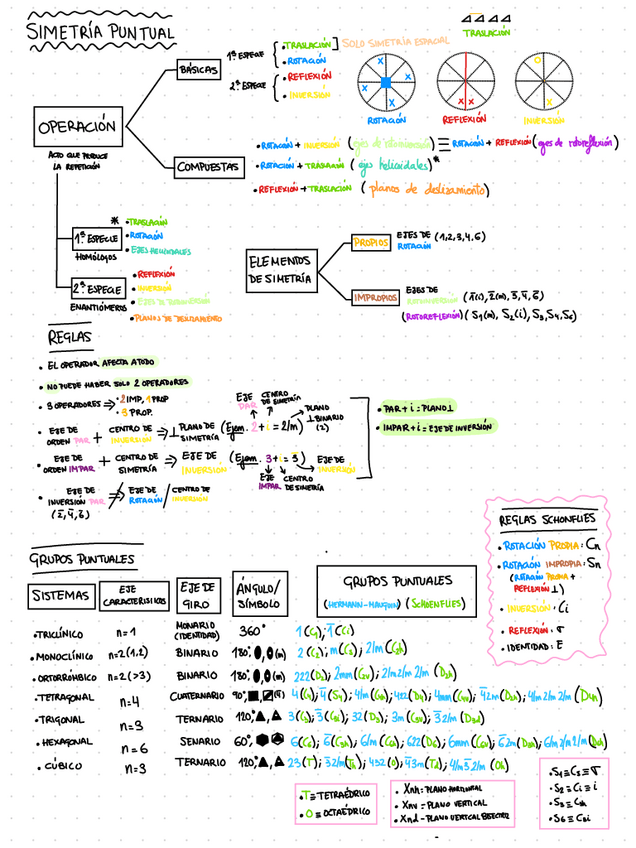 SIMETRÍA PUNTUAL
OPERACIÓN
ACTO QUE PRODUCE
LA REPETICIÓN
BÁSICAS
1ª ESPECIE
• TRASLACIÓN] SOLO SIMETRÍA ESPACIAL
• ROTACIÓN
2ª ESPECIE
• REFLEXIÓN
• INVERSIÓN
TRASLACIÓN
ROTACIÓN
REFLEXIÓN
INVERSIÓN
COMPUESTAS
• ROTACIÓN + INVERSIÓN (ejes de rotoinversión) ≡ ROTACIÓN + REFLEXIÓN (ejes de rotoreflexión)
• ROTACIÓN + TRASLACIÓN (ejes helicoidales)*
• REFLEXIÓN + TRASLACIÓN (planos de deslizamiento)
1ª ESPECIE
HOMÓLOGOS
* • TRASLACIÓN
• ROTACIÓN
• EJES HELICOIDALES
2ª ESPECIE
ENANTIÓMEROS
• REFLEXIÓN
• INVERSIÓN
• EJES DE ROTOINVERSIÓN
• PLANOS DE DESLIZAMIENTO
ELEMENTOS
DE SIMETRÍA
PROPIOS
EJES DE
ROTACIÓN
(1,2,3,4,6)
IMPROPIOS
EJES DE
ROTOINVERSIÓN (1̅(i), 2̅(m), 3̅, 4̅, 6̅)
(ROTOREFLEXIÓN) (S1(m), S2(i), S3, S4, S6)
REGLAS
• EL OPERADOR AFECTA A TODO
• NO PUEDE HABER SOLO 2 OPERADORES
• 3 OPERADORES ⇒ • 2 IMP, 1 PROP
• 3 PROP.
• EJE DE ORDEN PAR + CENTRO DE INVERSIÓN ⇒ ⊥ PLANO DE SIMETRÍA (Ejem. 2 + i = 2/m)
EJE PAR
CENTRO DE SIMETRÍA
PLANO ⊥ BINARIO (2)
• EJE DE ORDEN IMPAR + CENTRO DE SIMETRÍA ⇒ EJE DE INVERSIÓN (Ejem. 3 + i = 3̅)
EJE DE INVERSIÓN
EJE IMPAR
CENTRO DE SIMETRÍA
• EJE DE INVERSIÓN PAR (2̅, 4̅, 6̅) ⇏ EJE DE ROTACIÓN / CENTRO DE INVERSIÓN
• PAR + i = PLANO ⊥
• IMPAR + i = EJE DE INVERSIÓN
REGLAS SCHÖNFLIES
• ROTACIÓN PROPIA: Cn
• ROTACIÓN IMPROPIA: Sn
(ROTACIÓN PROPIA +
REFLEXIÓN ⊥)
• INVERSIÓN: Ci
• REFLEXIÓN: σ
• IDENTIDAD: E
GRUPOS PUNTUALES
SISTEMAS
EJE
CARACTERÍSTICOS
EJE DE
GIRO
ÁNGULO/
SÍMBOLO
GRUPOS PUNTUALES
(HERMANN-MAUGUIN) (SCHOENFLIES)
• TRICLÍNICO n=1 MONARIO (IDENTIDAD) 360° 1 (C1); 1̅ (Ci)
• MONOCLÍNICO n=2 (1,2) BINARIO 180° (m) 2 (C2); m (Cs); 2/m (C2h)
• ORTORRÓMBICO n=2 (>3) BINARIO 180° (m) 222 (D2); 2mm (C2v); 2/m2/m2/m (D2h)
• TETRAGONAL n=4 CUATERNARIO 90° 4 (C4); 4̅ (S4); 4/m (C4h); 422 (D4); 4mm (C4v); 4̅2m (D2d); 4/m2/m2/m (D4h)
• TRIGONAL n=3 TERNARIO 120° 3 (C3); 3̅ (C3i); 32 (D3); 3m (C3v); 3̅2/m (D3d)
• HEXAGONAL n=6 SENARIO 60° 6 (C6); 6̅ (C3h); 6/m (C6h); 622 (D6); 6mm (C6v); 6̅2m (D3h); 6/m2/m2/m (D6h)
• CÚBICO n=3 TERNARIO 120° 23 (T); 3̅2/m (Th); 432 (O); 4̅3m (Td); 4/m3̅2/m (Oh)
• T ≡ TETRAÉDRICO
• O ≡ OCTAÉDRICO
• Xnh = PLANO HORIZONAL
• Xnv = PLANO VERTICAL
• Xnd = PLANO VERTICAL BISECTRIZ
• S1 ≡ Cs ≡ σ
• S2 ≡ Ci ≡ i
• S3 ≡ C3h
• S6 ≡ C3i